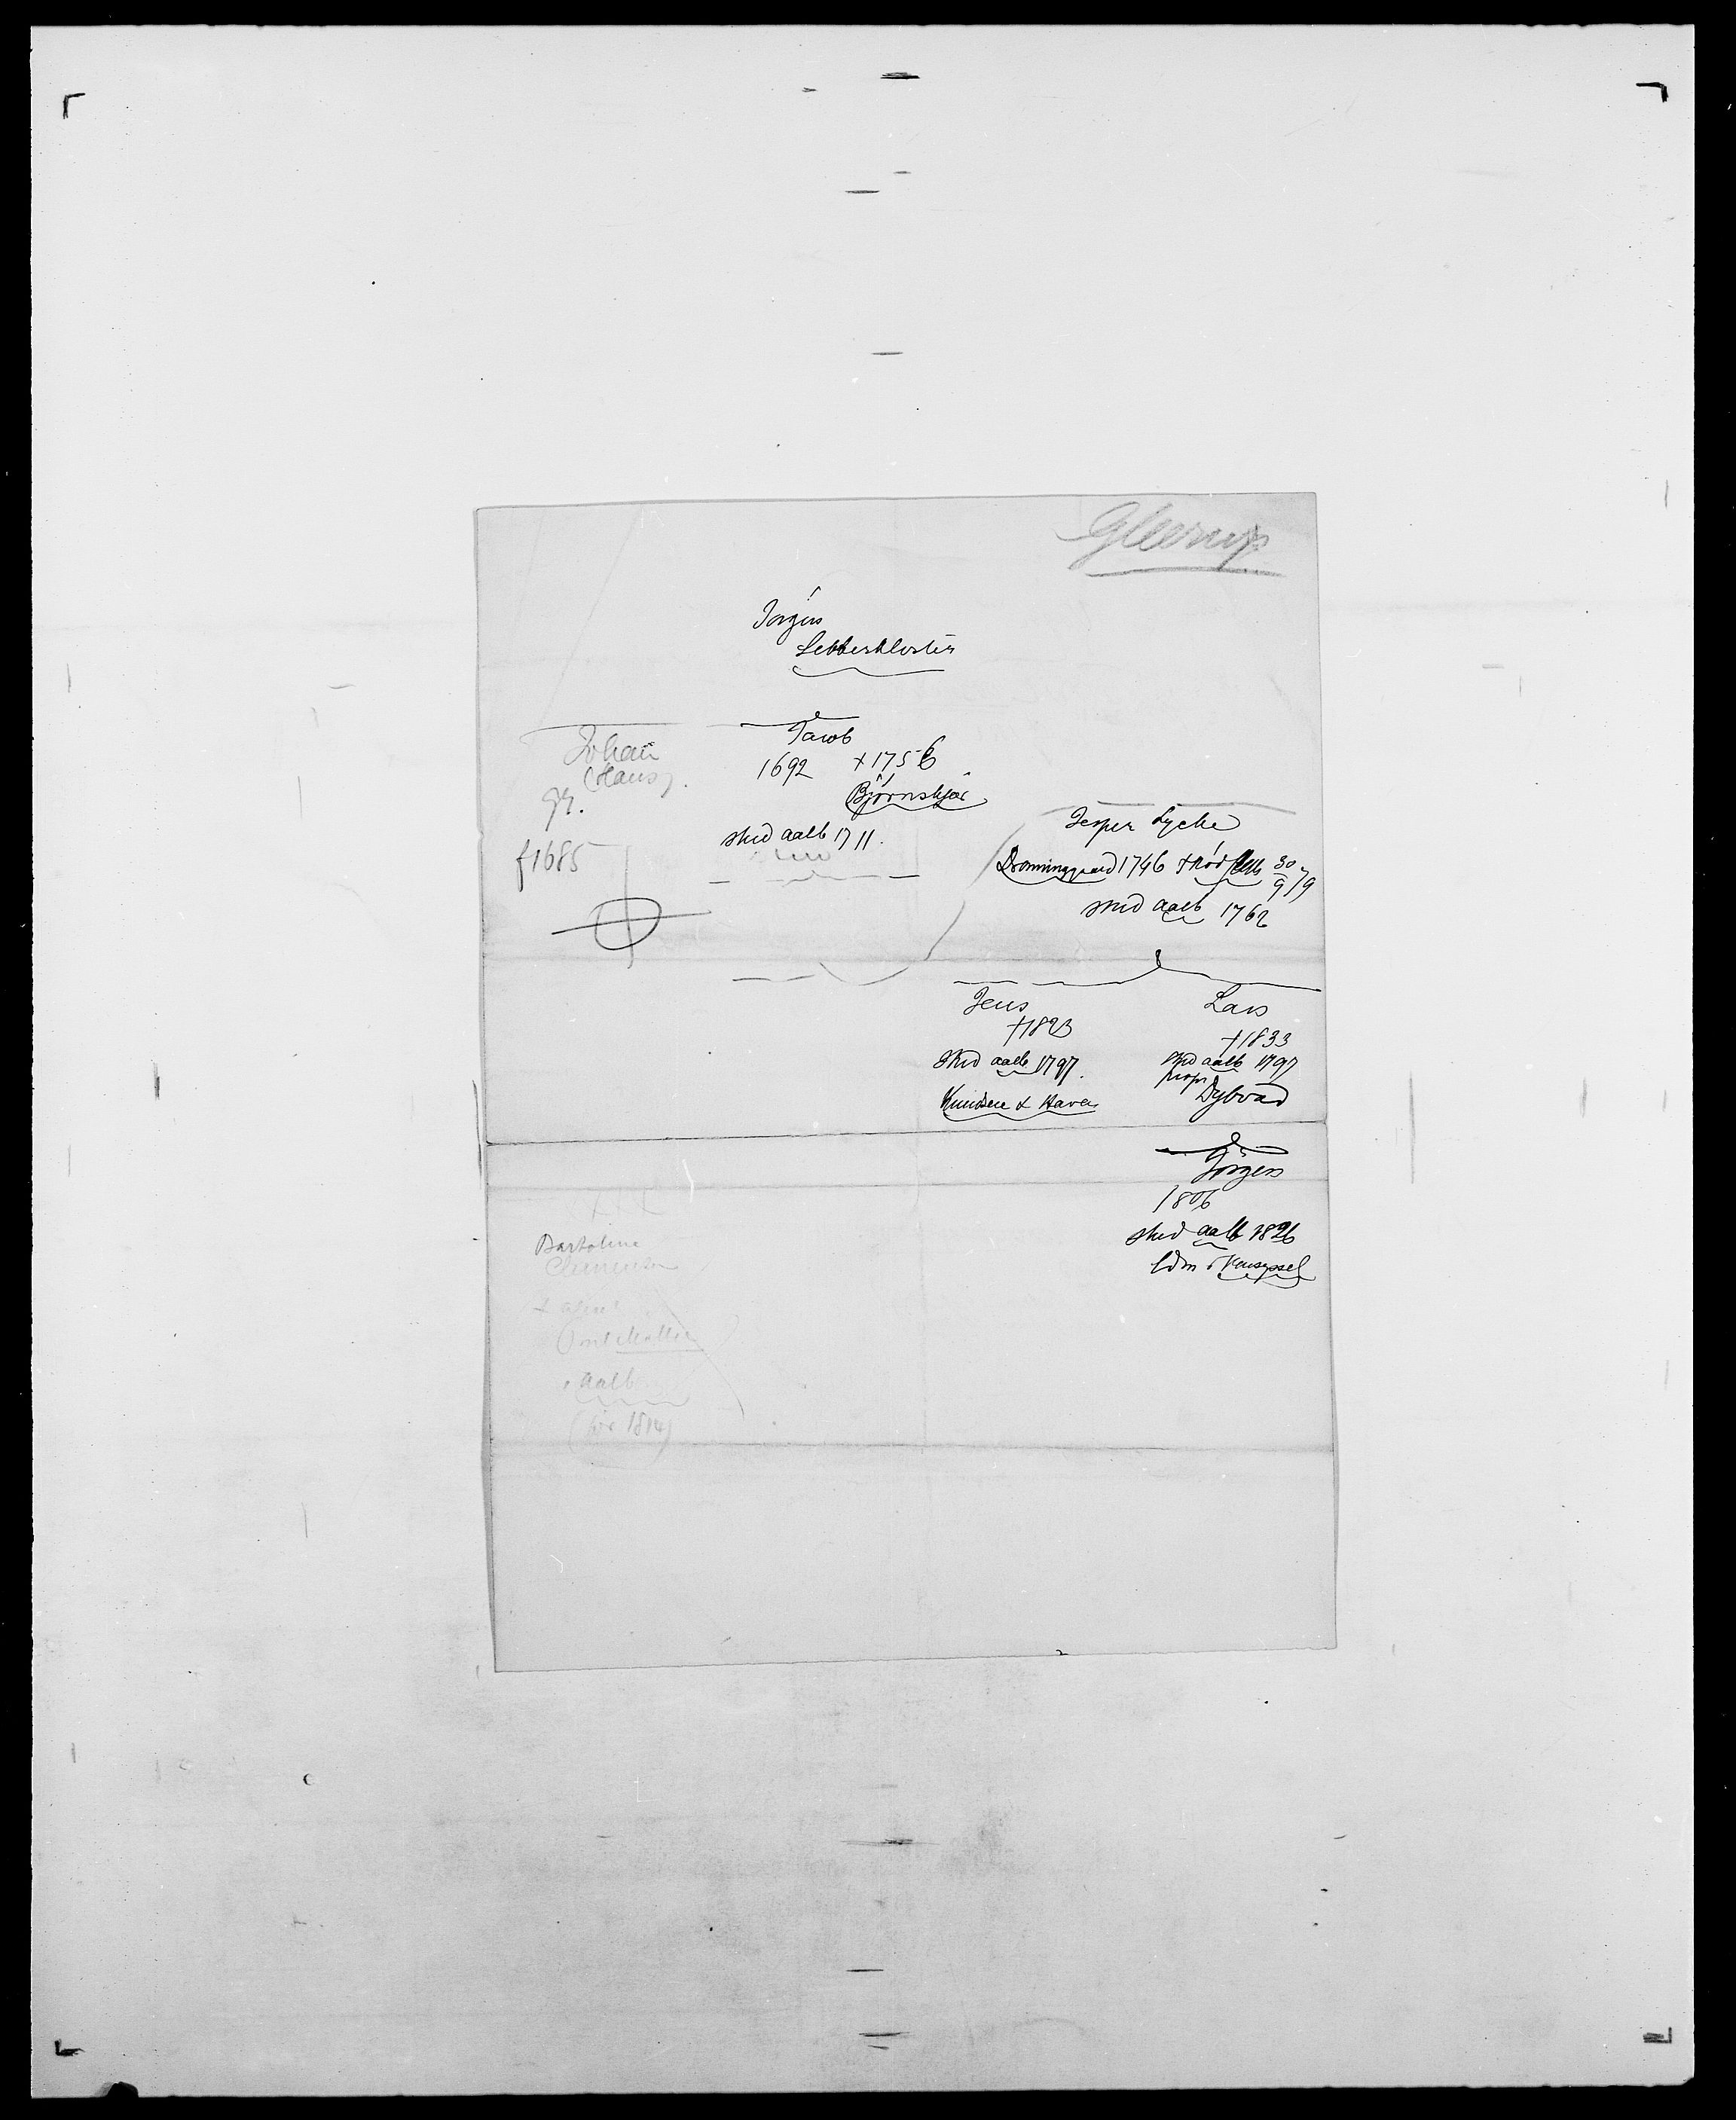 Gleerup
Jørgen
Sebberkloster
Johan
(Hans)
gr.
f 1685
Jacob
1692 + 1756
Bjørnskjær
stud aalb 1711.
Jesper Lycke
Dronninggaard 1746 +
stud aalb 1762
Jens
+ 1823
stud aalb 1797.
Knudsen & Haven
Lars
+ 1833
stud aalb 1797
propr
Dybvad
Jørgen
1806
stud aalb 1826
Bartoline
Clemensen
aalb
(før 1814)